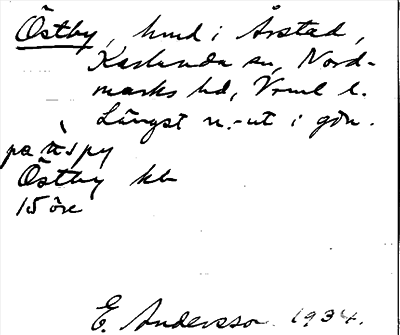 Östby, hmd i Årstad,
Karlanda sn, Nord-
marks hd, Vrml l.
Längst n.-ut i gdn.
Östby kb
15 öre
E. Andersson 1934.